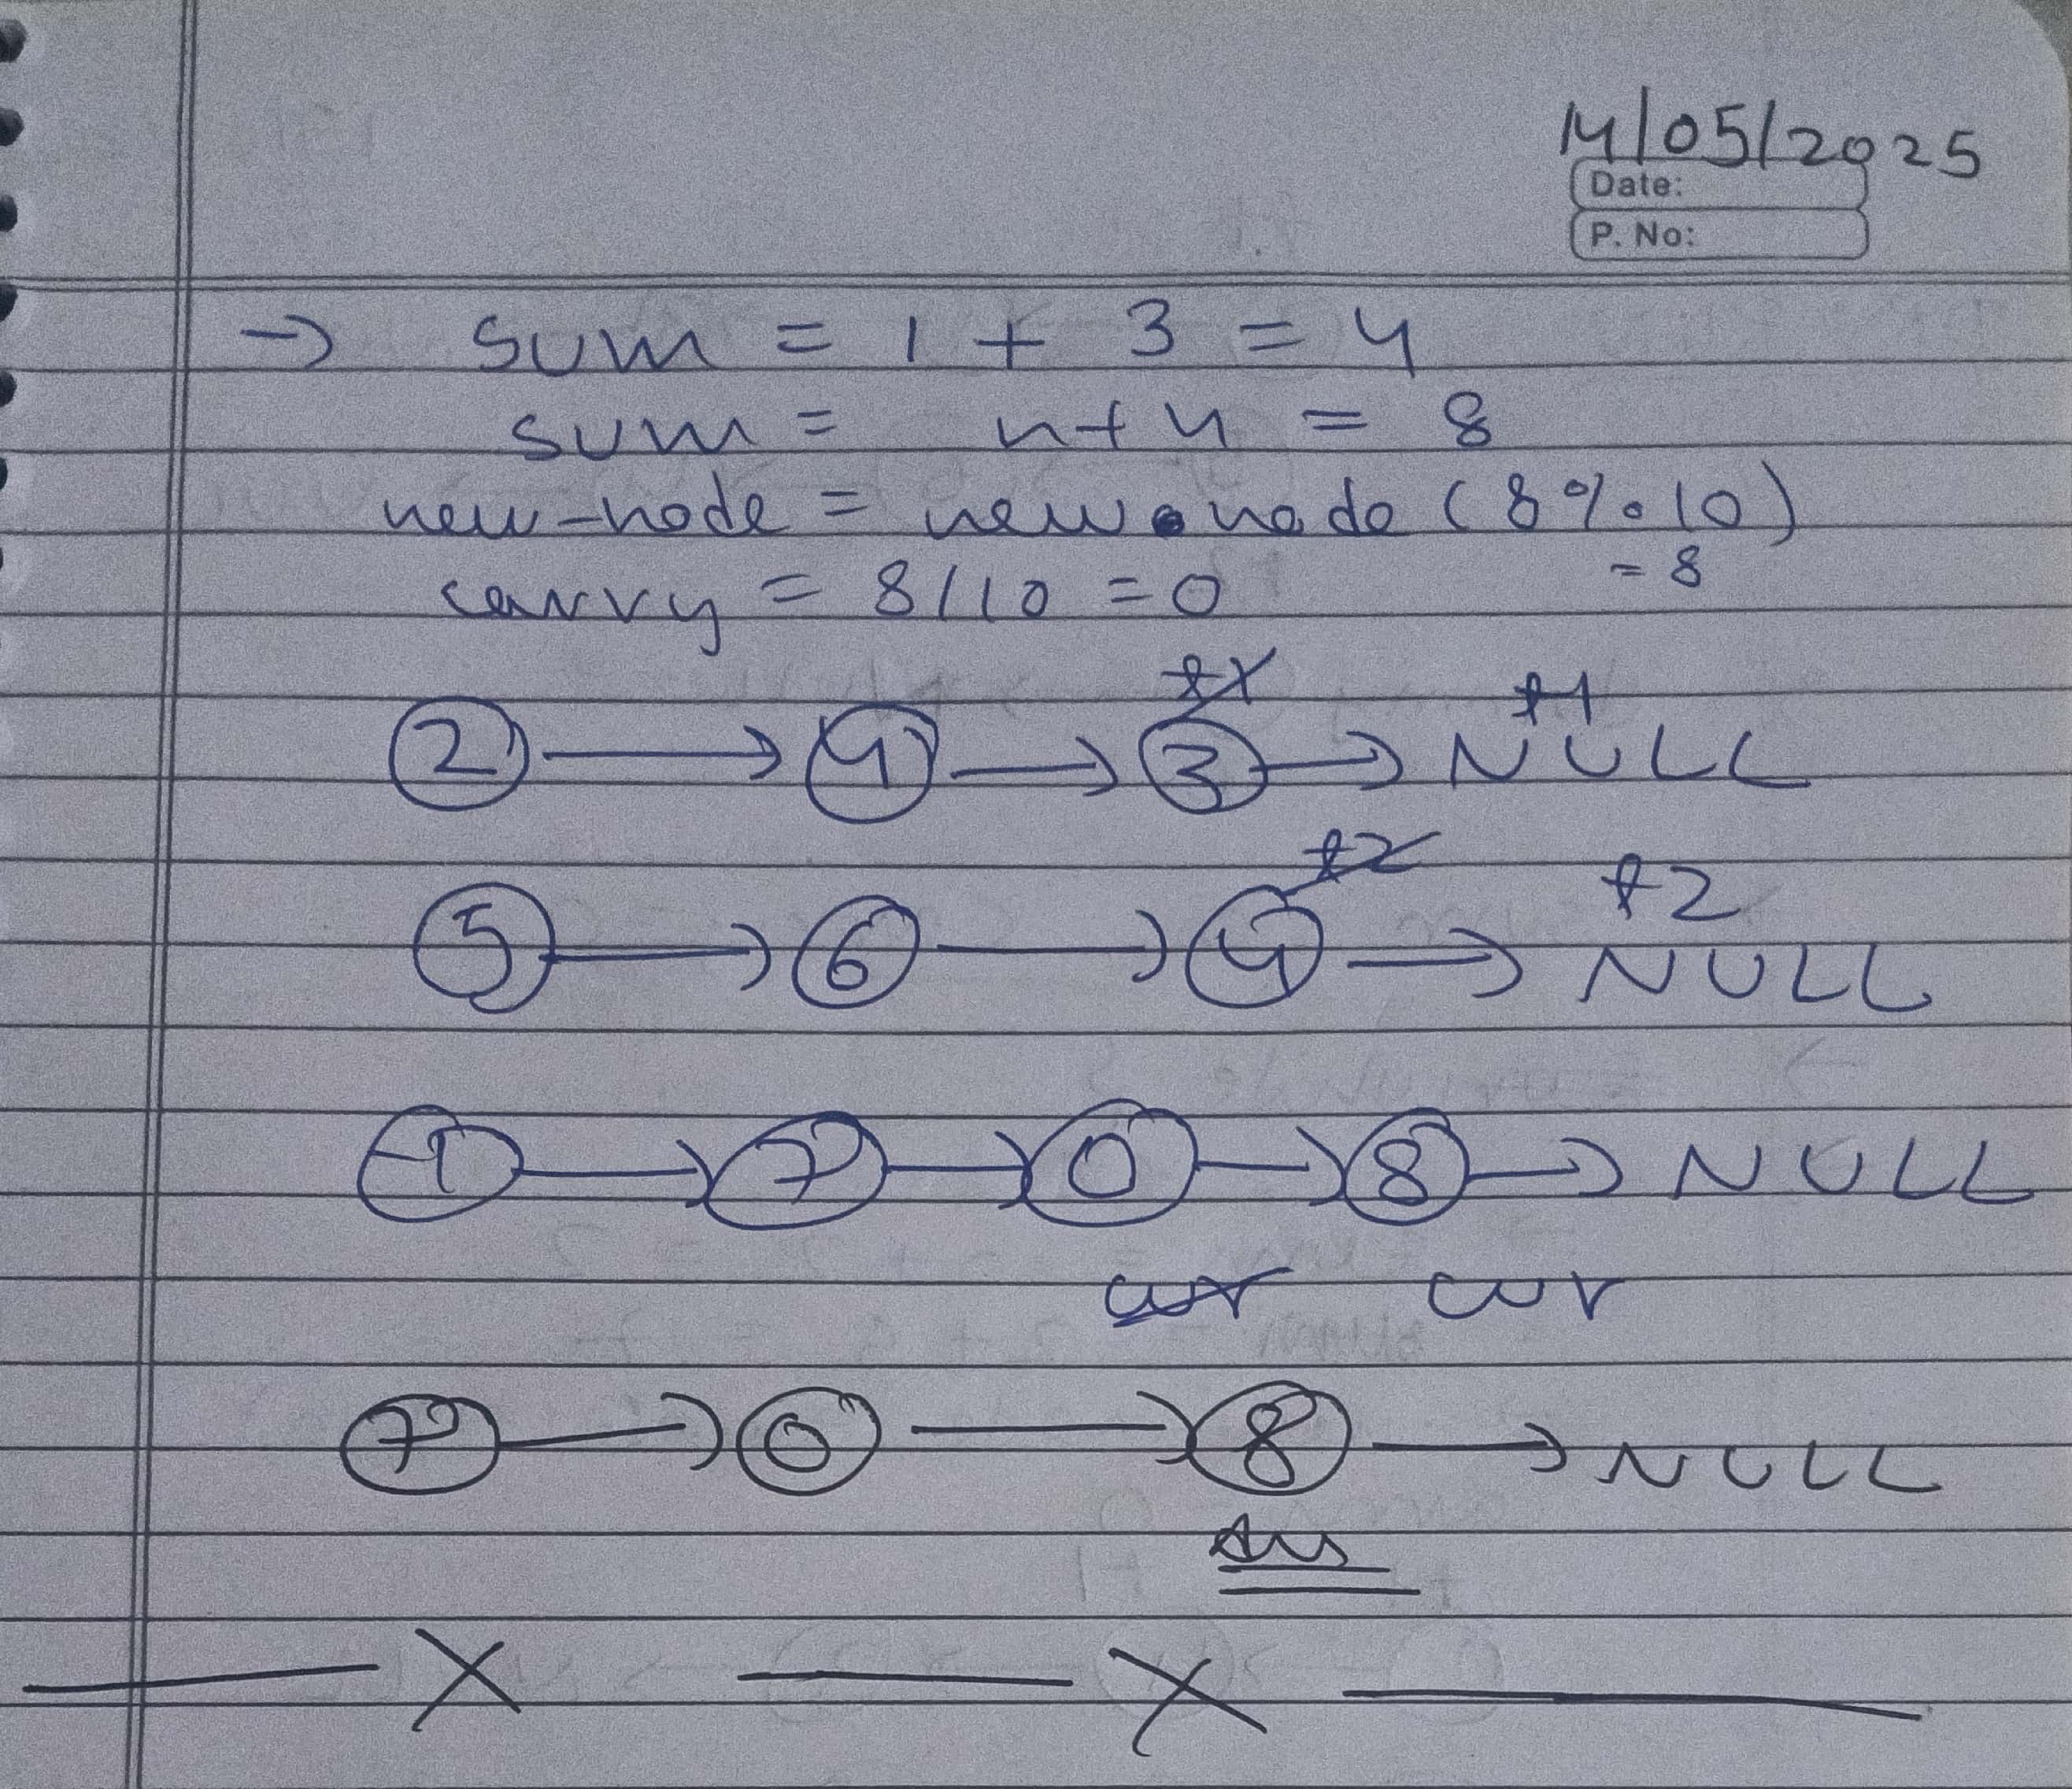 14/05/2025
Date:
P. No:
→ sum = 1 + 3 = 4
sum = 4+4 = 8
new-node = new node (8%10)
= 8
carry = 8/10 = 0
t1 t1
2 → 4 → 3 → NULL
t2 t2
5 → 6 → 4 → NULL
-1 → 7 → 0 → 8 → NULL
cur cur
7 → 0 → 8 → NULL
Ans
— X — X —